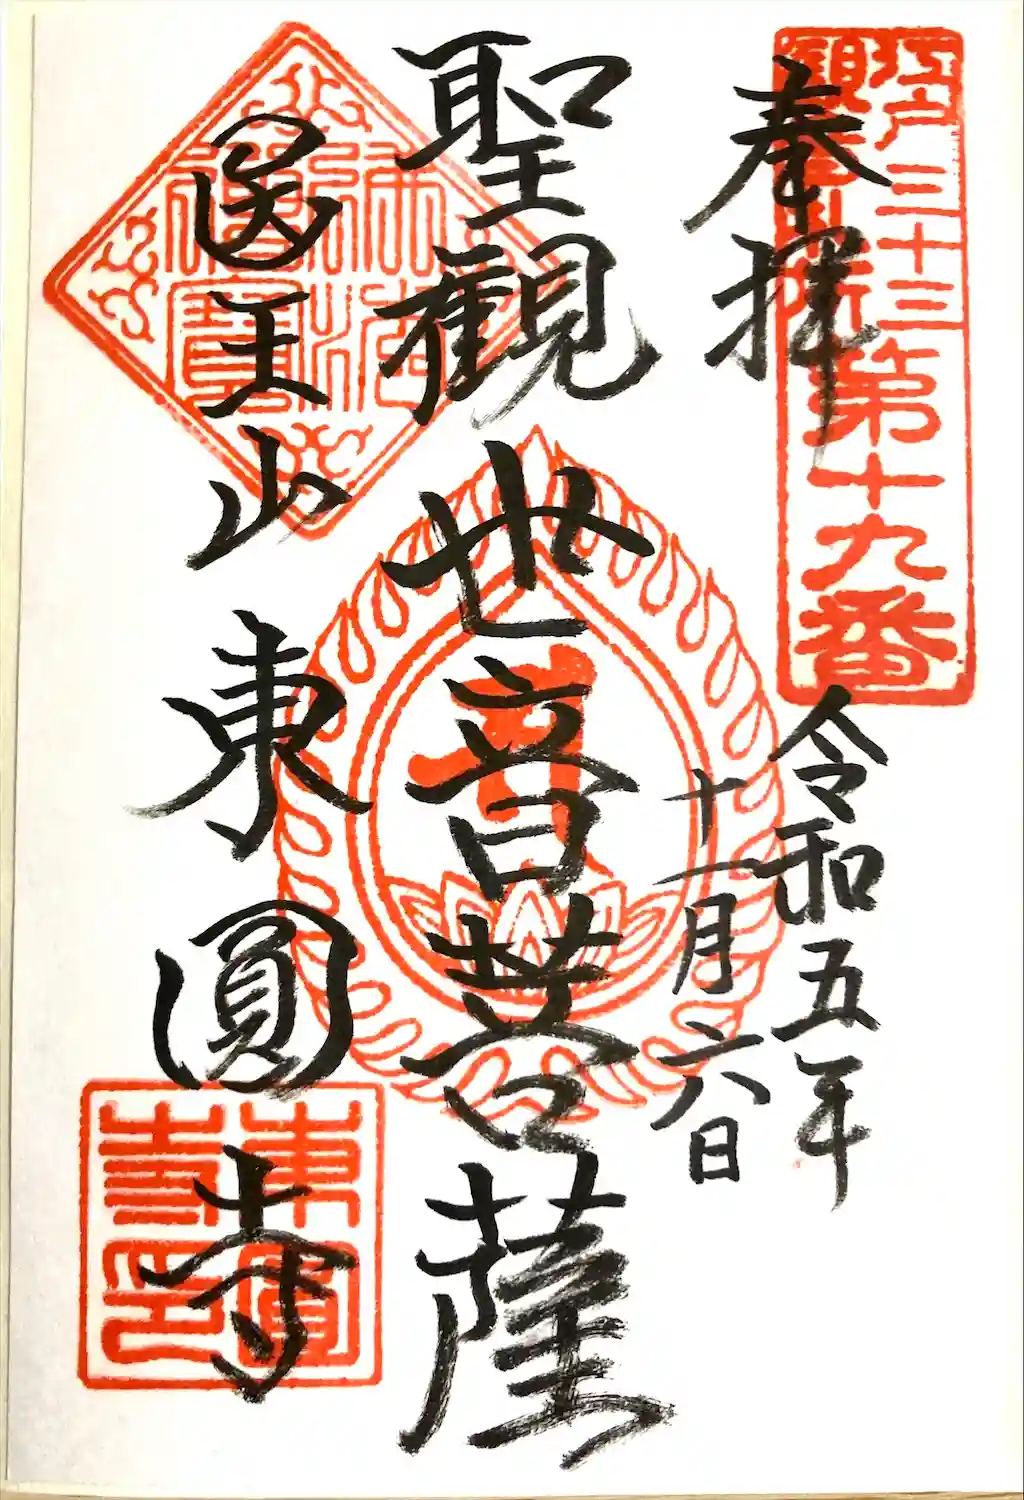 江戸三十三
觀音札所
第十九番
奉拝
令和五年
十一月六日
聖観世音菩薩
医王山
東圓寺
佛法僧寶
東圓寺印